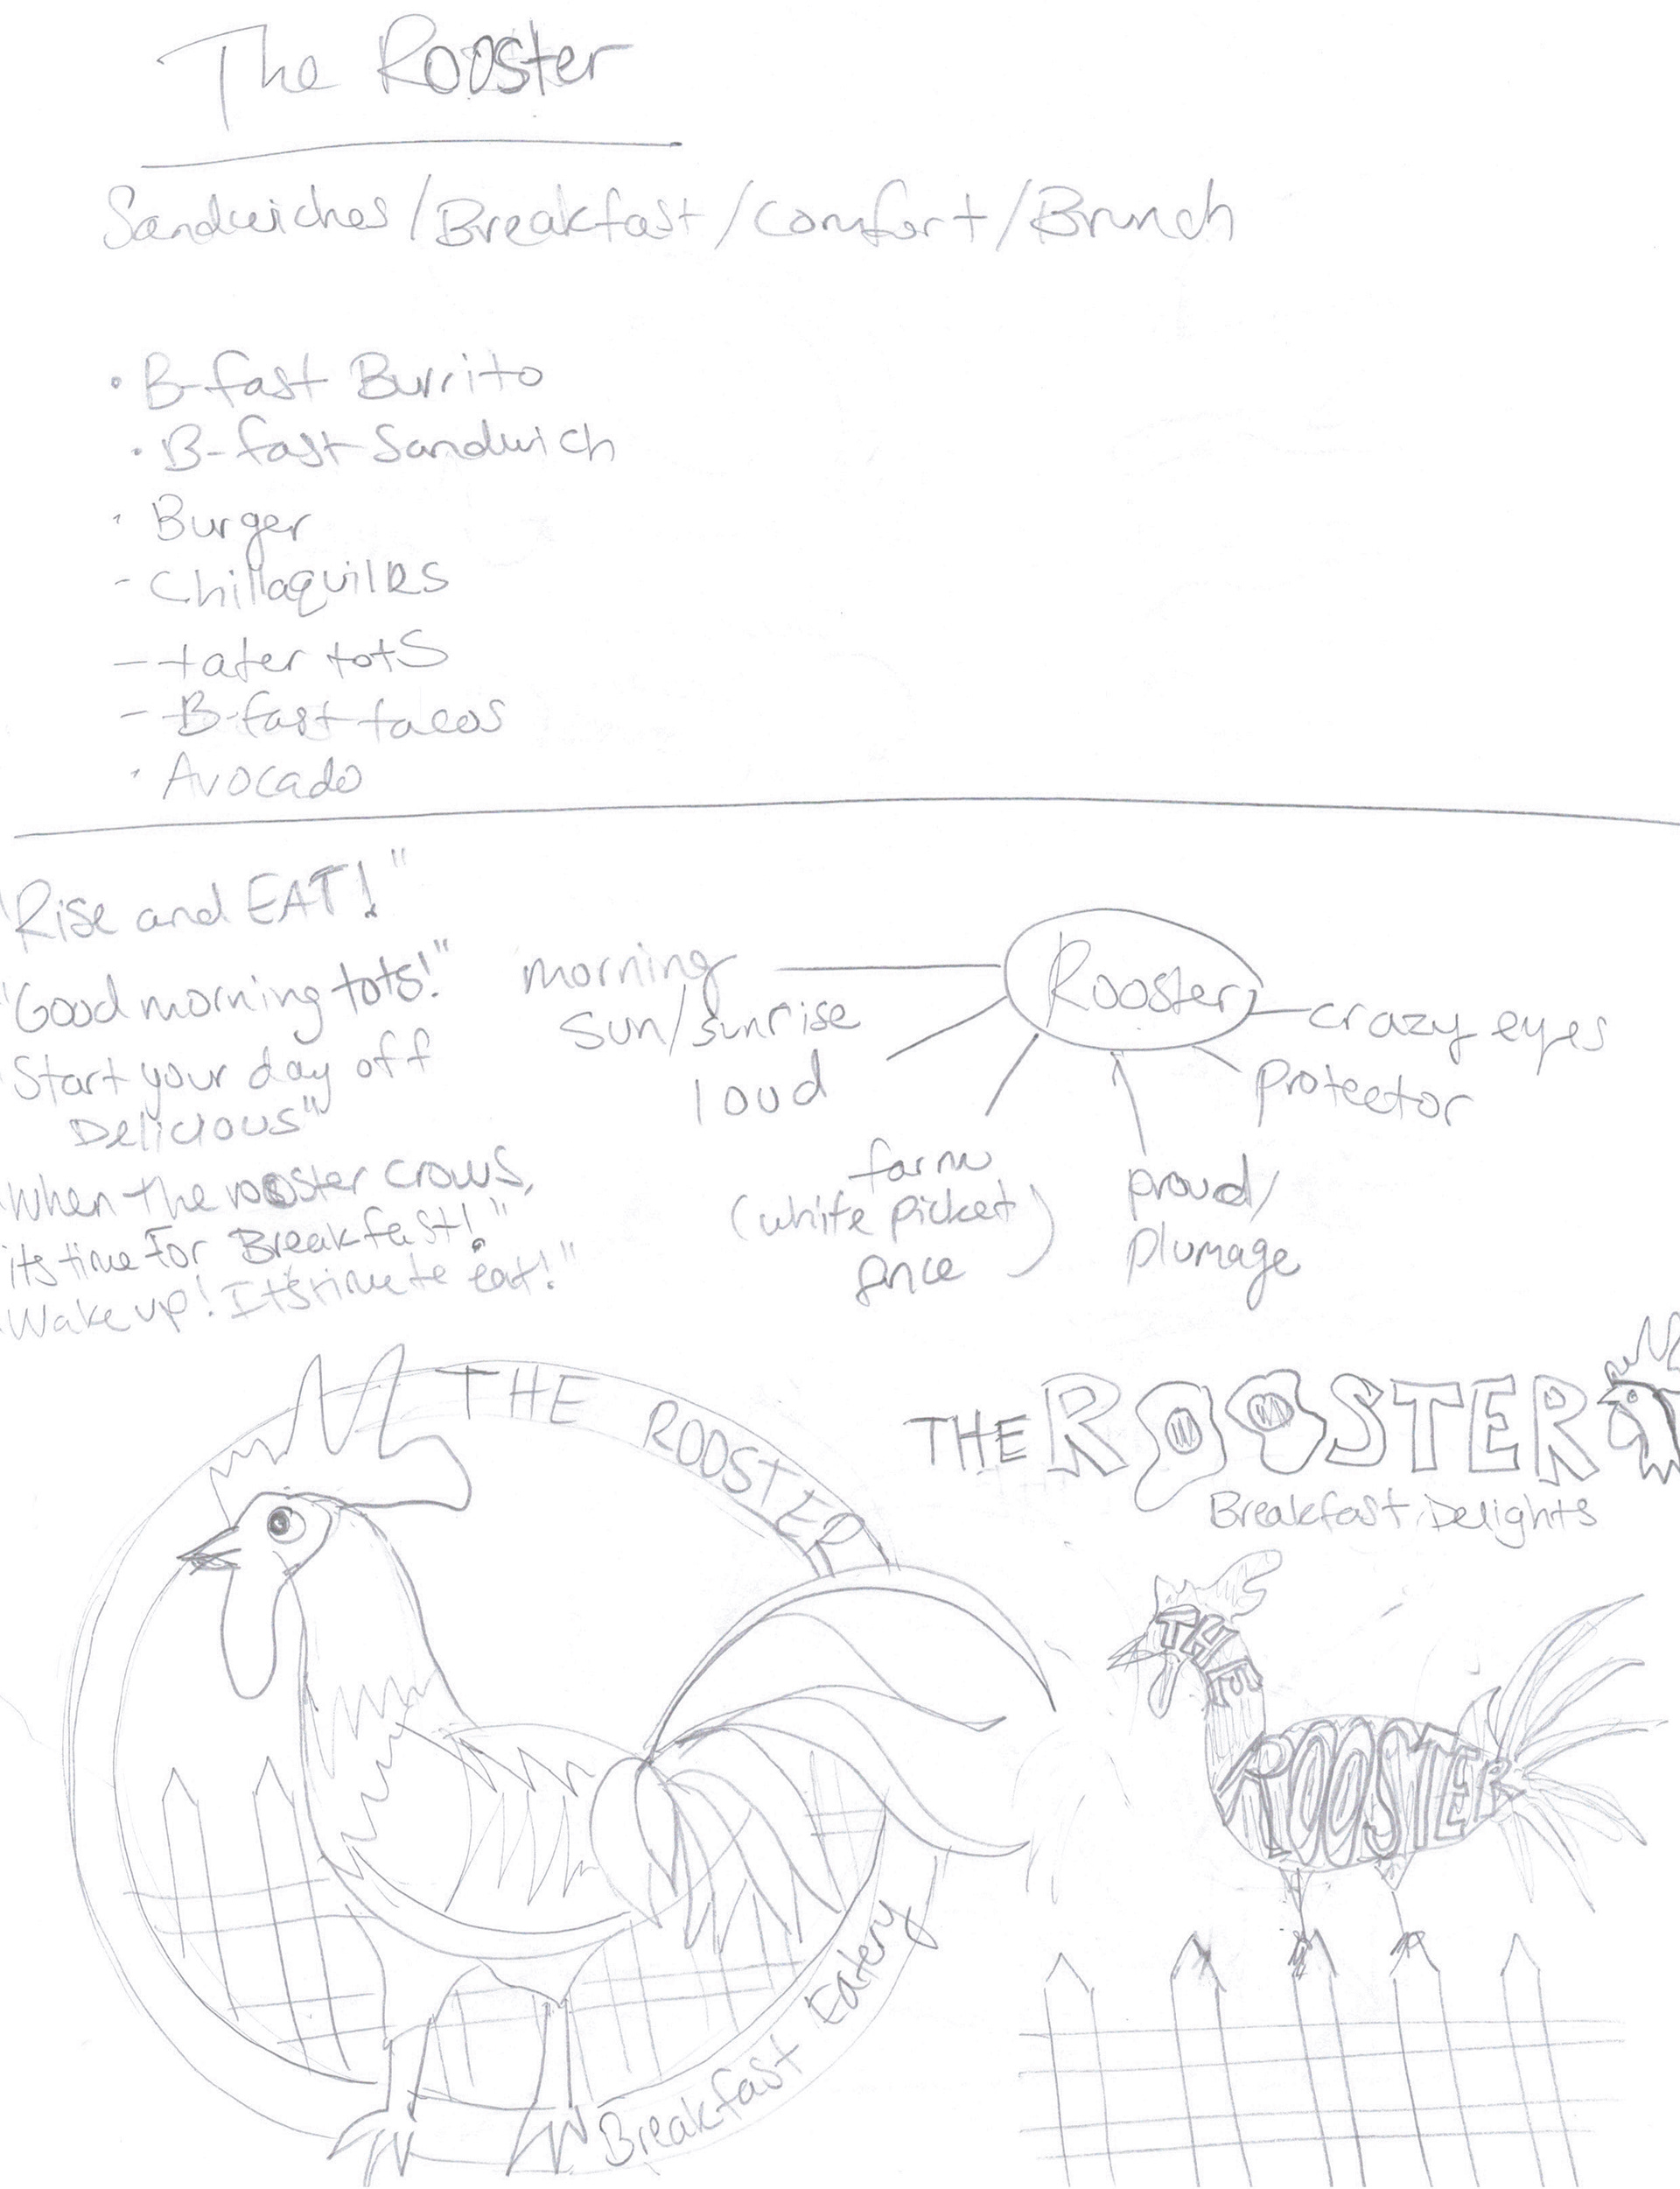 The Rooster
Sandwiches/Breakfast/Comfort/Brunch
• B-fast Burrito
• B-fast Sandwich
• Burger
- Chillaquiles
- tater tots
- B-fast tacos
• Avocado
"Rise and EAT!"
"Good morning tots!"
"Start your day off
Delicious"
"When the rooster crows,
its time For Breakfast!"
"Wake up! It's time to eat!"
Rooster
morning
Sun/sunrise
loud
farm
(white picket
fence)
proud/
plumage
protector
crazy eyes
THE ROOSTER
Breakfast Eatery
THE ROOSTER
Breakfast Delights
THE
ROOSTER